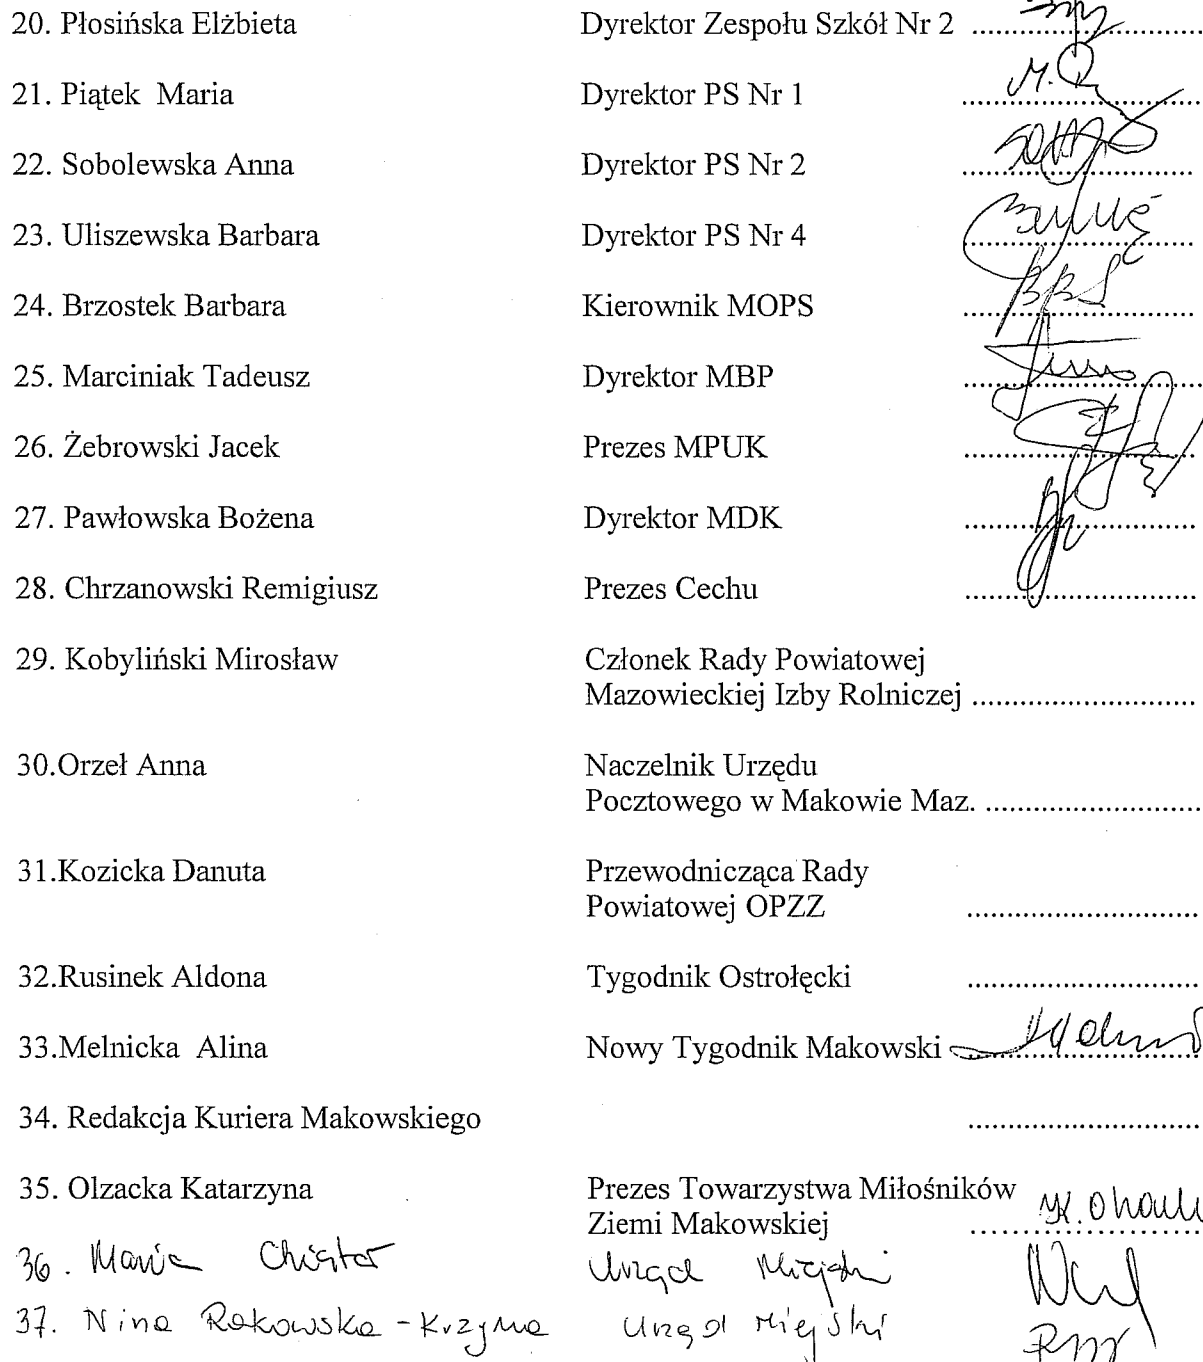 20. Płosińska Elżbieta Dyrektor Zespołu Szkół Nr 2 ..........................
21. Piątek Maria Dyrektor PS Nr 1 M. ..........................
22. Sobolewska Anna Dyrektor PS Nr 2 ..........................
23. Uliszewska Barbara Dyrektor PS Nr 4 ..........................
24. Brzostek Barbara Kierownik MOPS ..........................
25. Marciniak Tadeusz Dyrektor MBP ..........................
26. Żebrowski Jacek Prezes MPUK ..........................
27. Pawłowska Bożena Dyrektor MDK ..........................
28. Chrzanowski Remigiusz Prezes Cechu ..........................
29. Kobyliński Mirosław Członek Rady Powiatowej
Mazowieckiej Izby Rolniczej ..........................
30.Orzeł Anna Naczelnik Urzędu
Pocztowego w Makowie Maz. ..........................
31.Kozicka Danuta Przewodnicząca Rady
Powiatowej OPZZ ..........................
32.Rusinek Aldona Tygodnik Ostrołęcki ..........................
33.Melnicka Alina Nowy Tygodnik Makowski ..........................
34. Redakcja Kuriera Makowskiego ..........................
35. Olzacka Katarzyna Prezes Towarzystwa Miłośników
Ziemi Makowskiej ..........................
36. Maria Urząd Miejski
37. Nina Rakowska-Krzyma Urząd Miejski